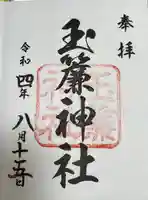 奉拝
玉簾神社
令和四年八月十五日